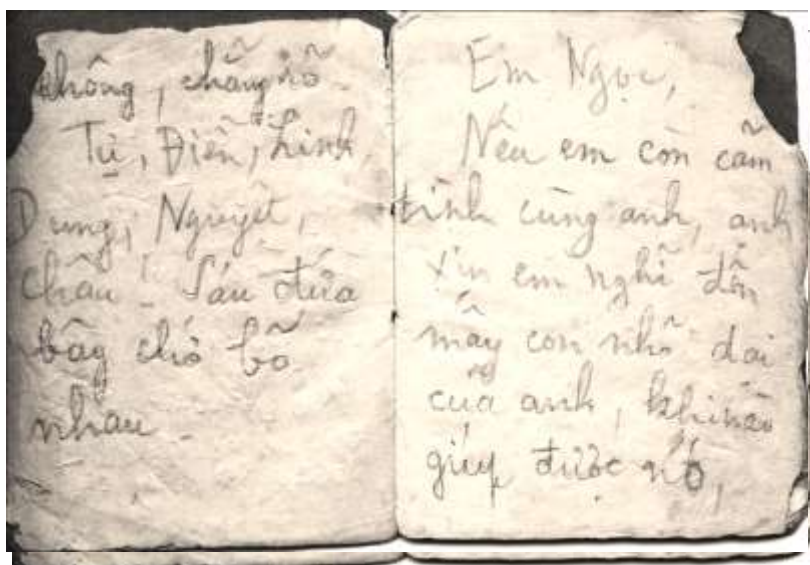 không, chẳng nỡ.
Tụ, Điền, hinh,
Dung, Nguyệt,
Châu. Sáu đứa
bây chớ bỏ
nhau.
Em Ngọc,
Nếu em còn cảm
tình cùng anh, anh
xin em nghĩ đến
mấy con nhỏ dại
của anh, khi nào
giúp được nó,